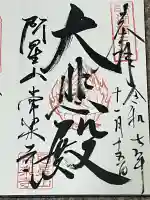 奉拝 令和七年
十一月十五日
大悲殿
阿星山 常楽寺